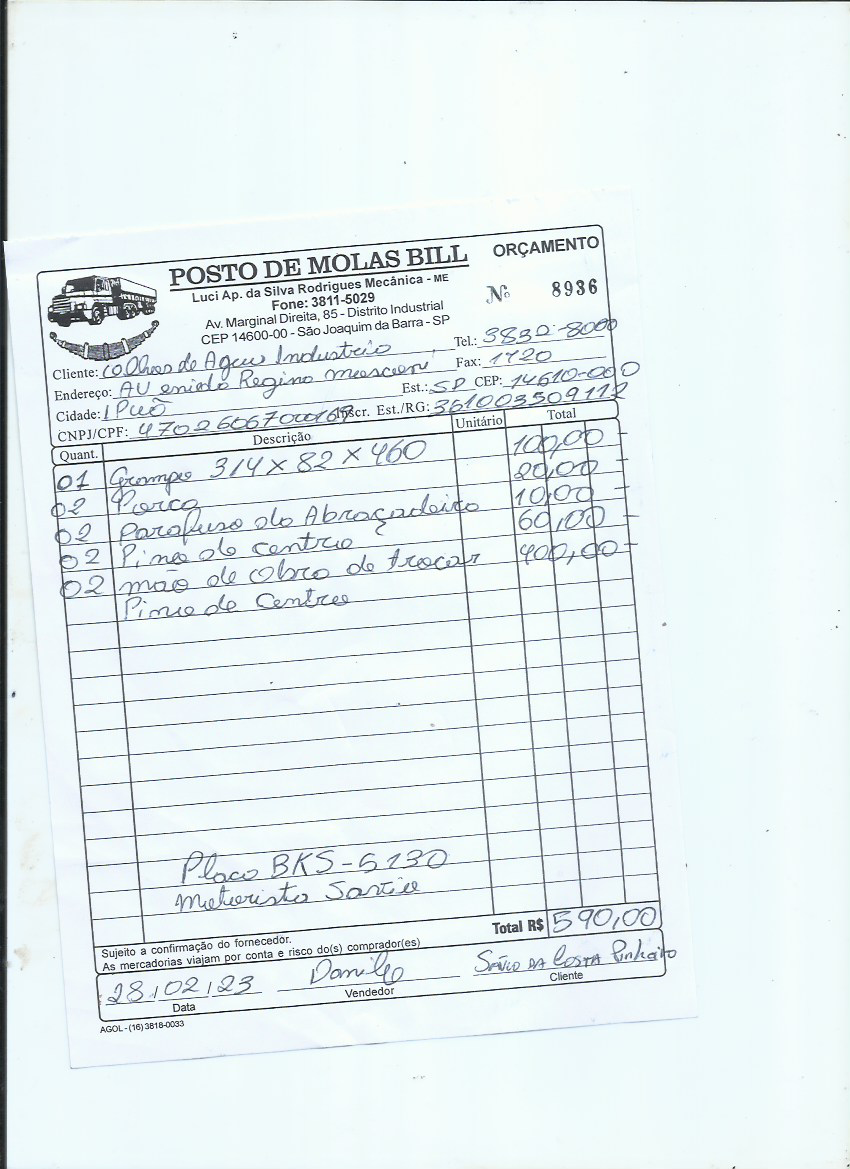 POSTO DE MOLAS BILL
ORÇAMENTO
Luci Ap. da Silva Rodrigues Mecânica - ME
Fone: 3811-5029
Nº 8936
Av. Marginal Direita, 85 - Distrito Industrial
CEP 14600-00 - São Joaquim da Barra - SP
Cliente: Colhos de Agua Industrio Tel.: 3832-8000
Endereço: AV enido Regino Fax: 1720
Cidade: IPuã Est.: SP CEP: 14610-000
CNPJ/CPF: Inscr. Est./RG: 361003509112
Quant. Descrição Unitário Total
01 Grampo 3/4 x 82 x 460 100,00
02 Porca 20,00
02 Parafuso do Abraçadeira 10,00
02 Pino de centro 60,00
02 mão de Obra de trocar 400,00
Pino de Centro
Placa BKS-5130
Motorista
Total R$ 590,00
Sujeito a confirmação do fornecedor.
As mercadorias viajam por conta e risco do(s) comprador(es)
28/02/23 Danilo Sávio da Costa Pinheiro
Data Vendedor Cliente
AGOL - (16) 3818-0033